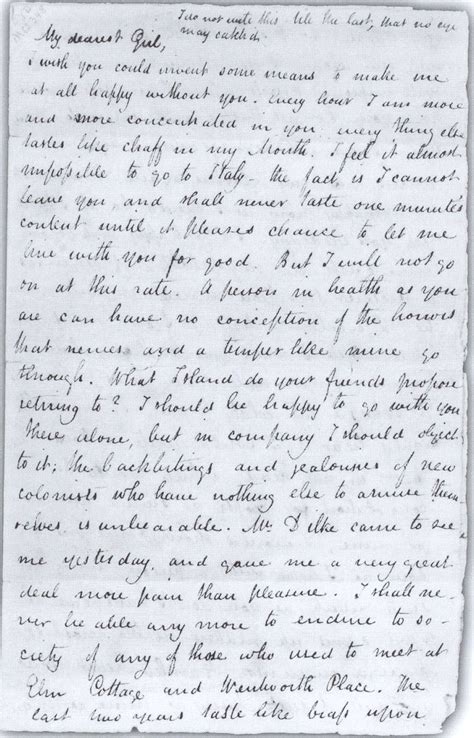 I do not write this till the last, that no eye
may catch it.
My dearest Girl,
I wish you could invent some means to make me
at all happy without you. Every hour I am more
and more concentrated in you; every thing else
tastes like chaff in my Mouth. I feel it almost
impossible to go to Italy - the fact is I cannot
leave you, and shall never taste one minute's
content until it pleases chance to let me
live with you for good. But I will not go
on at this rate. A person in health as you
are can have no conception of the horrors
that nerves and a temper like mine go
through. What Island do your friends propose
retiring to? I should be happy to go with you
there alone, but in company I should object
to it; the backbitings and jealousies of new
colonists who have nothing else to amuse them
selves, is unbearable. Mr Dilke came to see
me yesterday, and gave me a very great
deal more pain than pleasure. I shall ne-
ver be able any more to endure to so-
ciety of any of those who used to meet at
Elm Cottage and Wentworth Place. The
last two years taste like brass upon